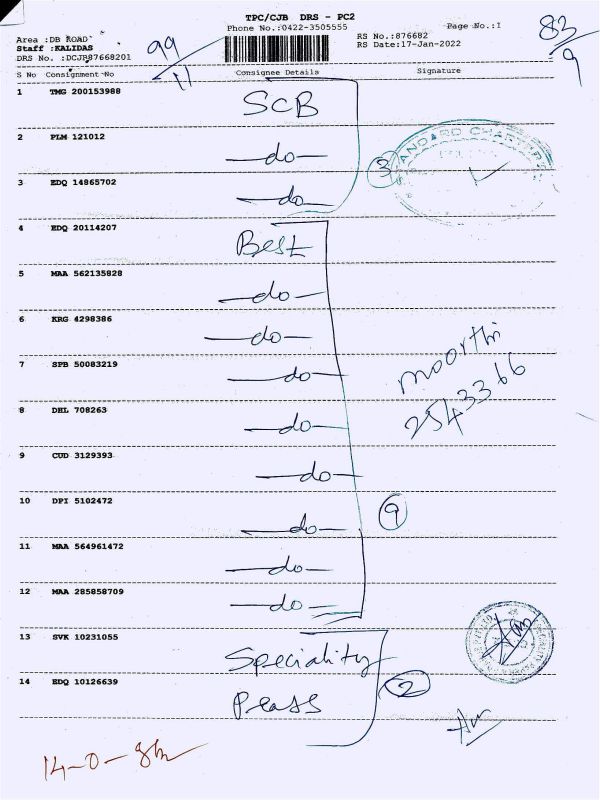 TPC/CJB DRS - PC2
Phone No.:0422-3505555
Page No.:1
83/9
Area :DB ROAD
Staff :KALIDAS
DRS No. :DCJP87668201
99/11
RS No.:876682
RS Date:17-Jan-2022
S No Consignment No Consignee Details Signature
1 TMG 200153988 SCB
2 PLM 121012 —do—
3 EDQ 14865702 —do—
3
STANDARD CHARTERED
4 EDQ 20114207 Best
5 MAA 562135828 —do—
6 KRG 4298386 —do—
7 SPB 50083219 —do—
moorthi
2543366
8 DHL 708263 —do—
9 CUD 3129393 —do—
10 DPI 5102472 —do—
9
11 MAA 564961472 —do—
12 MAA 285858709 —do—
13 SVK 10231055 Speciality
14 EDQ 10126639 Peass
2
14-0-